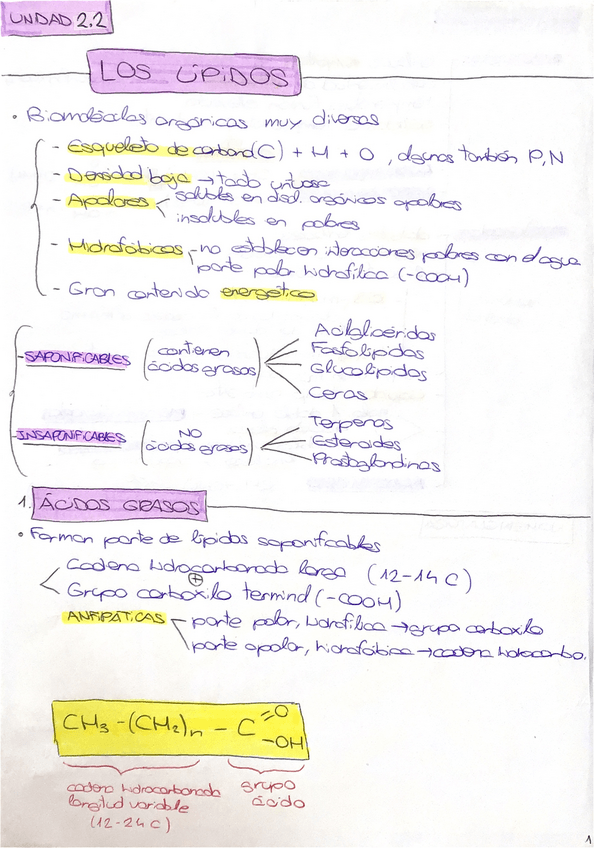 UNIDAD 2.2
LOS LÍPIDOS
• Biomoléculas orgánicas muy diversas
- Esqueleto de carbono (C) + H + O, algunos también P, N
- Densidad baja → tacto untuoso
- Apolares
solubles en disol. orgánicos apolares
insolubles en polares
- Hidrofóbicos - no establecen interacciones polares con el agua
parte polar hidrofílica (-COOH)
- Gran contenido energético
- SAPONIFICABLES (contienen ácidos grasos)
Acilglicéridos
Fosfolípidos
Glucolípidos
Ceras
- INSAPONIFICABLES (NO ácidos grasos)
Terpenos
Esteroides
Prostaglandinas
1. ÁCIDOS GRASOS
• Forman parte de lípidos saponificables
Cadena hidrocarbonada larga (12-14 C)
+
Grupo carboxilo terminal (-COOH)
ANFIPÁTICAS
parte polar, hidrofílica → grupo carboxilo
parte apolar, hidrofóbica → cadena hidrocarbo.
CH3 - (CH2)n - C =O -OH
cadena hidrocarbonada
longitud variable
(12-24 C)
grupo
ácido
1